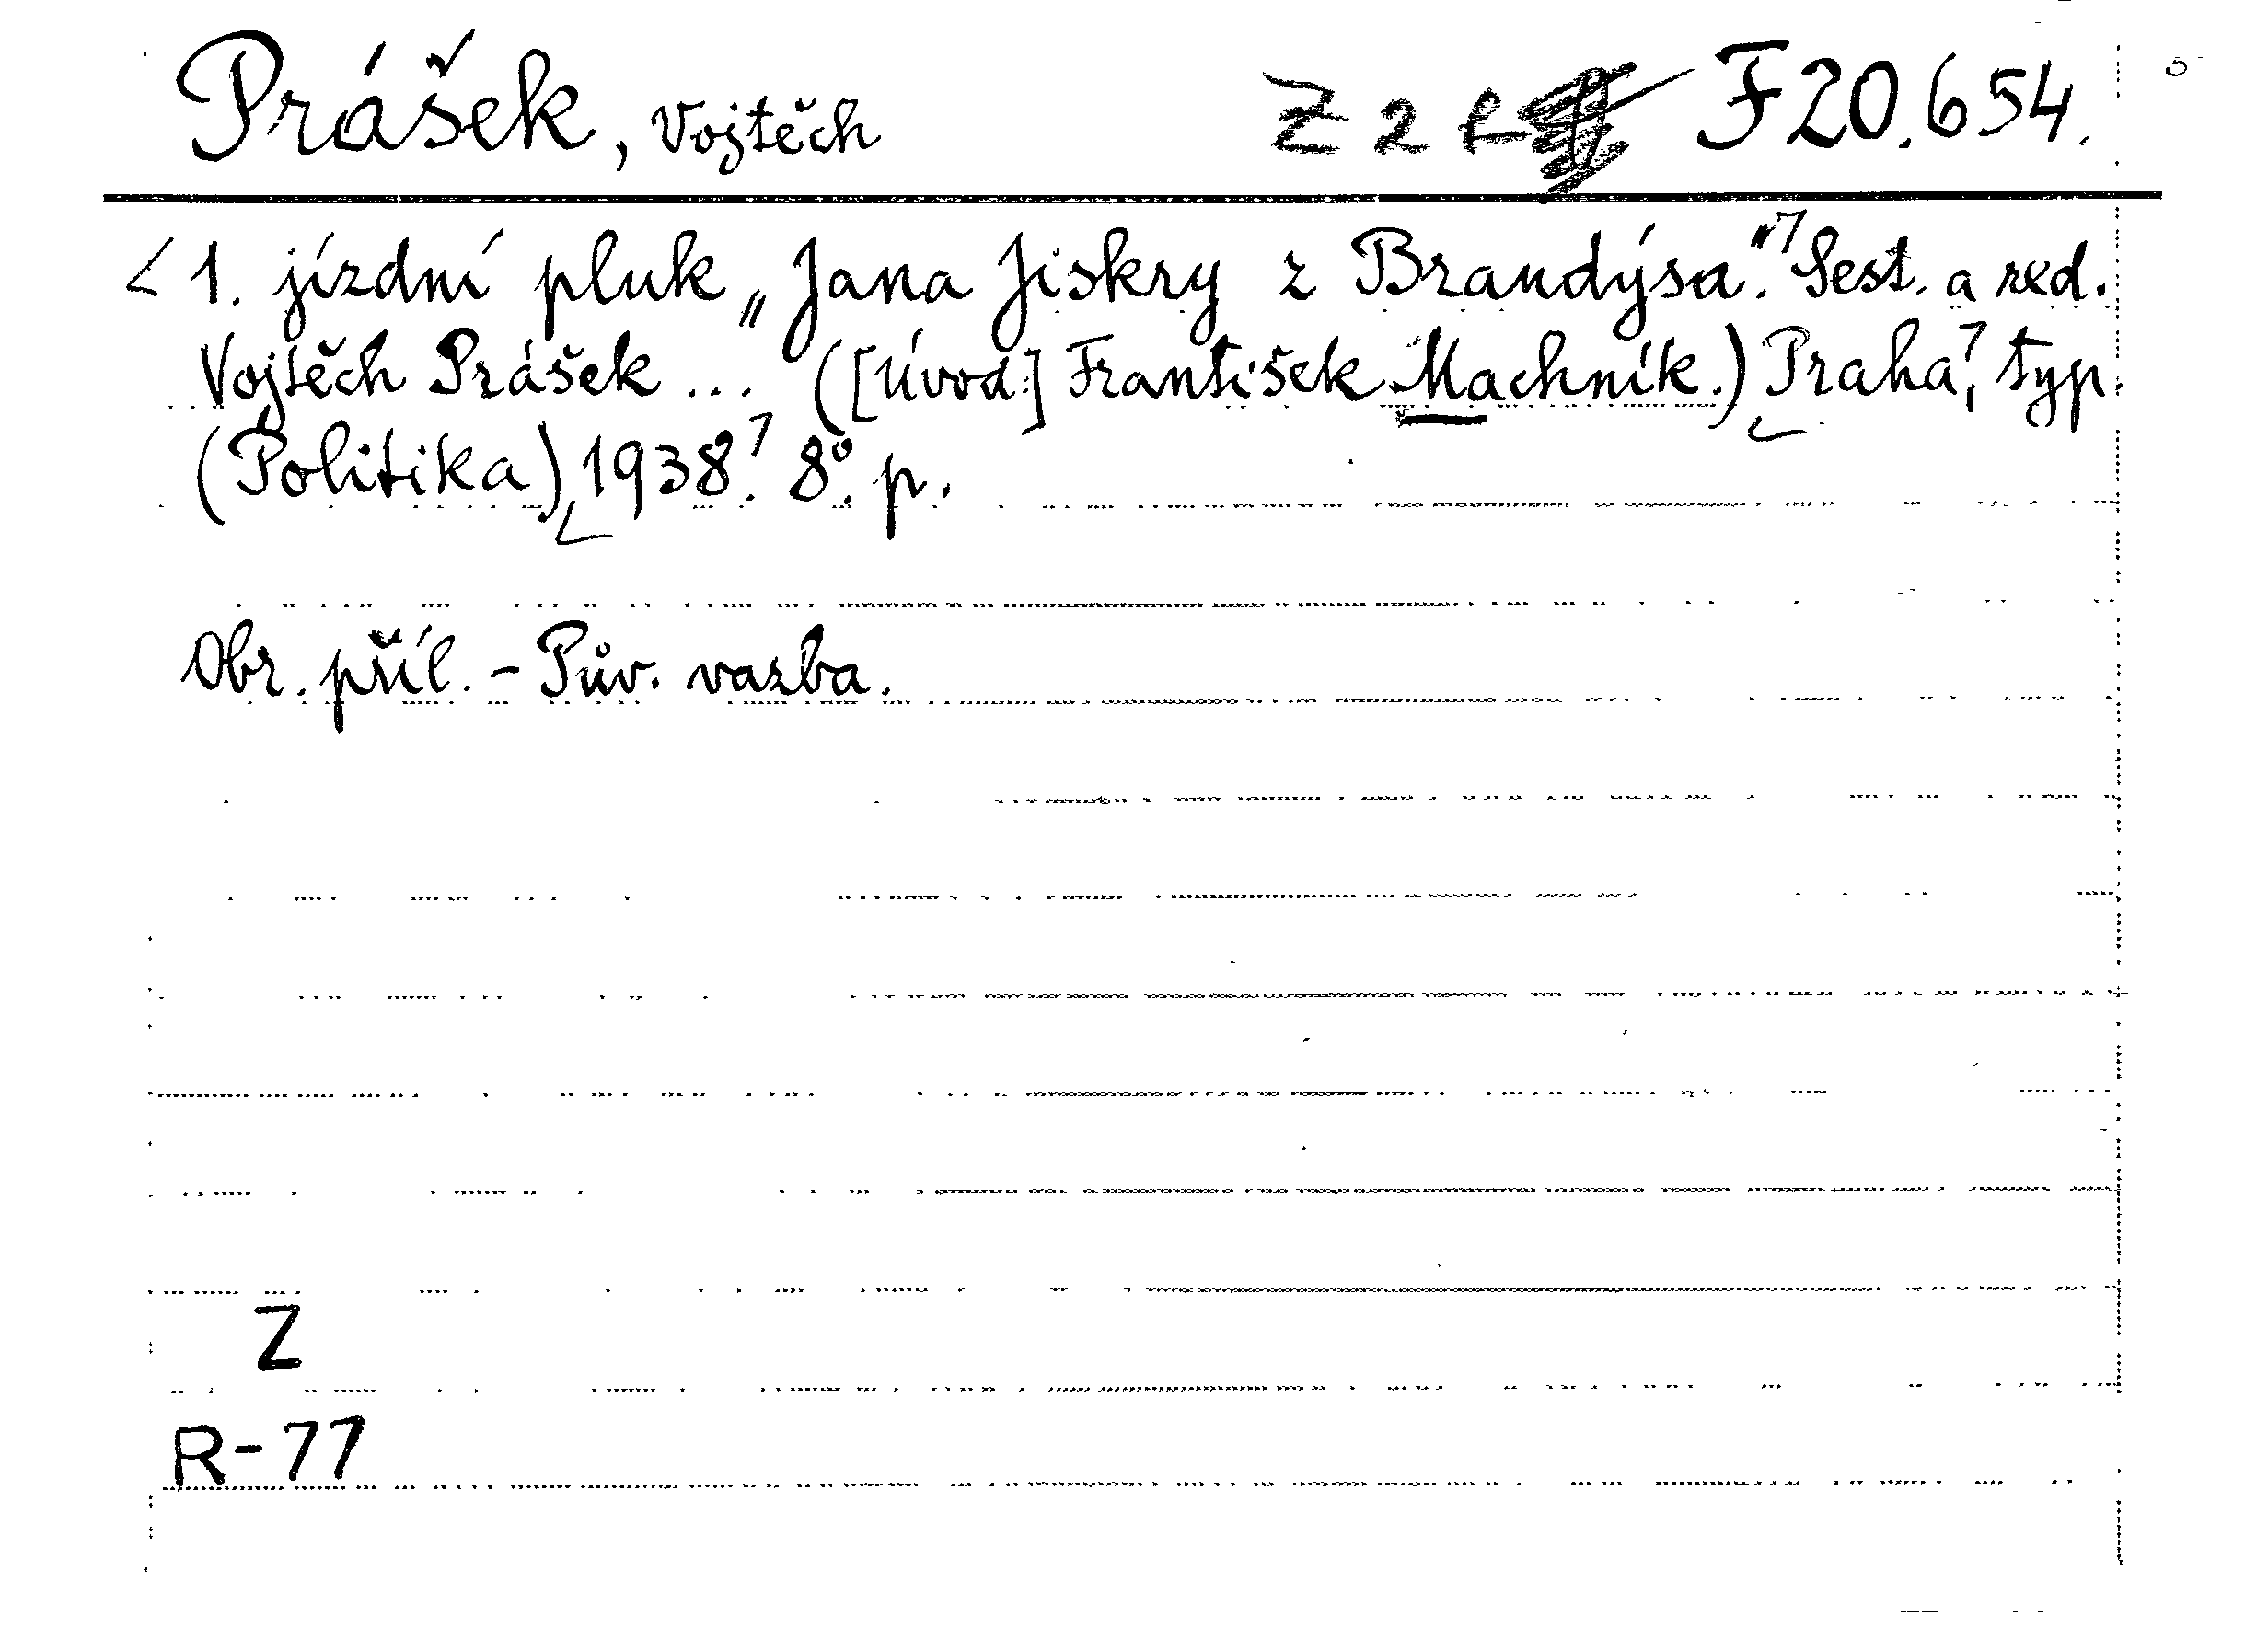 Prášek, Vojtěch Z 2 F 20.654.
< 1. jízdní pluk „Jana Jiskry z Brandýsa." Sest. a red.
Vojtěch Prášek ... ([Úvod:] František Machník.) Praha, typ.
(Politika) 1938. 8°. p.
Obr. příl. - Pův. vazba.
Z
R-77